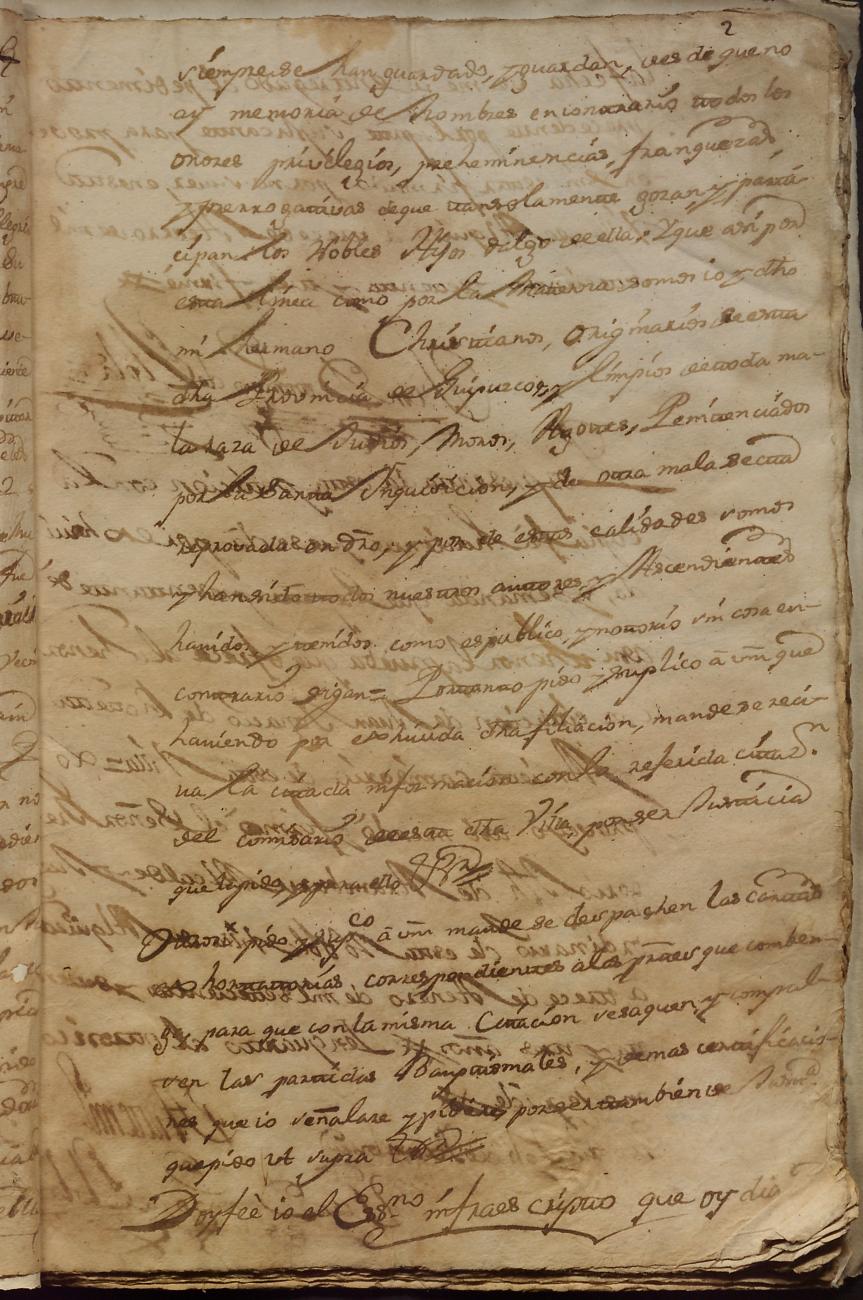 2
siempre se han guardado, y guardan, desde que no
ay memoria de hombres en contrario todos los
onores privilegios, preheminencias, franquezas
y prerrogativas de que tan solamente gozan, y parti-
cipan los Nobles Hijos dalgo de ella, Y que asi por
esta linea como por la Materna somos io y dho
mi hermano Christianos, originarios de esta
dha Provincia de Guipuzcoa, y limpios de toda ma-
la raza de Judios, Moros, Agotes, Penitenciados
por la Santa Inquisicion, y de otra mala secta
reprovada en dro, y por de estas calidades somos
y han sido todos nuestros autores, y Ascendientes
havidos, y tenidos como es publico, y notorio sin cosa en-
contrario digan = Portanto pido y suplico a vm que
haviendo por exhivida dha filiacion, mande se reci-
va la citada informacion con la referida citazn
del comisario de esta dha Villa por ser Justicia
que la pido, y para ello
Otrosi pido y supco a vm mande se despachen las cartas
hortatorias correspondientes a las ptes que comben-
ga, para que con la misma Citacion se saquen, y compul-
sen las partidas Bauptismales, y demas certificacio-
nes que io señalare y pidiere por ser tambien de Justa
que pido ut supra
Doy fee io el Essno infraescripto que oy dia